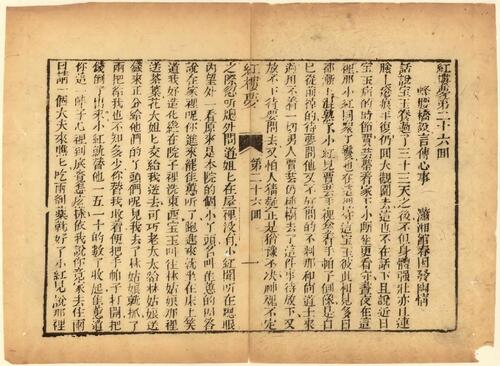 紅樓夢第二十六回
蜂腰橋設言傳心事 瀟湘館春困發幽情
話說寶玉養過了三十三天之後不但身體強壯亦且連
臉上瘡痕平復仍回大觀園去這也不在話下且說近日
寶玉病的時節賈芸帶着家下小廝坐更看守晝夜在這
裡那小紅同衆丫鬟也在這裡守着寶玉彼此相見多日
都漸漸混熟了小紅見賈芸手裡拿着手帕子倒像是自
己從前掉的待要問他又不好問的不料那和尚道士來
過用不着一切男人賈芸仍種樹去了這件事待放下又
放不下待要問去又怕人猜疑正是猶豫不決神魂不定
紅樓夢 第二十六回 一
之際忽聽窓外問道姐姐在屋裡沒有小紅聞聽在窓眼
内望外一看原來是本院的個小丫頭名叫佳蕙的因答
說在家裡呢你進來罷佳蕙聽了跑進來就坐在床上笑
道我好造化纔在院子裡洗東西寶玉叫往林姑娘那裡
送茶葉花大姐姐交給我送去可巧老太太給林姑娘送
錢來正分給他們的丫頭們呢見我去了林姑娘就抓了
兩把給我也不知多少你替我收着便把手帕子打開把
錢倒了出來小紅就替他一五一十的數了收起佳蕙道
你這一陣子心裡到底覺怎麽樣依我說你竟家去住兩
日請一個大夫來瞧瞧吃兩劑藥就好了小紅說那裡